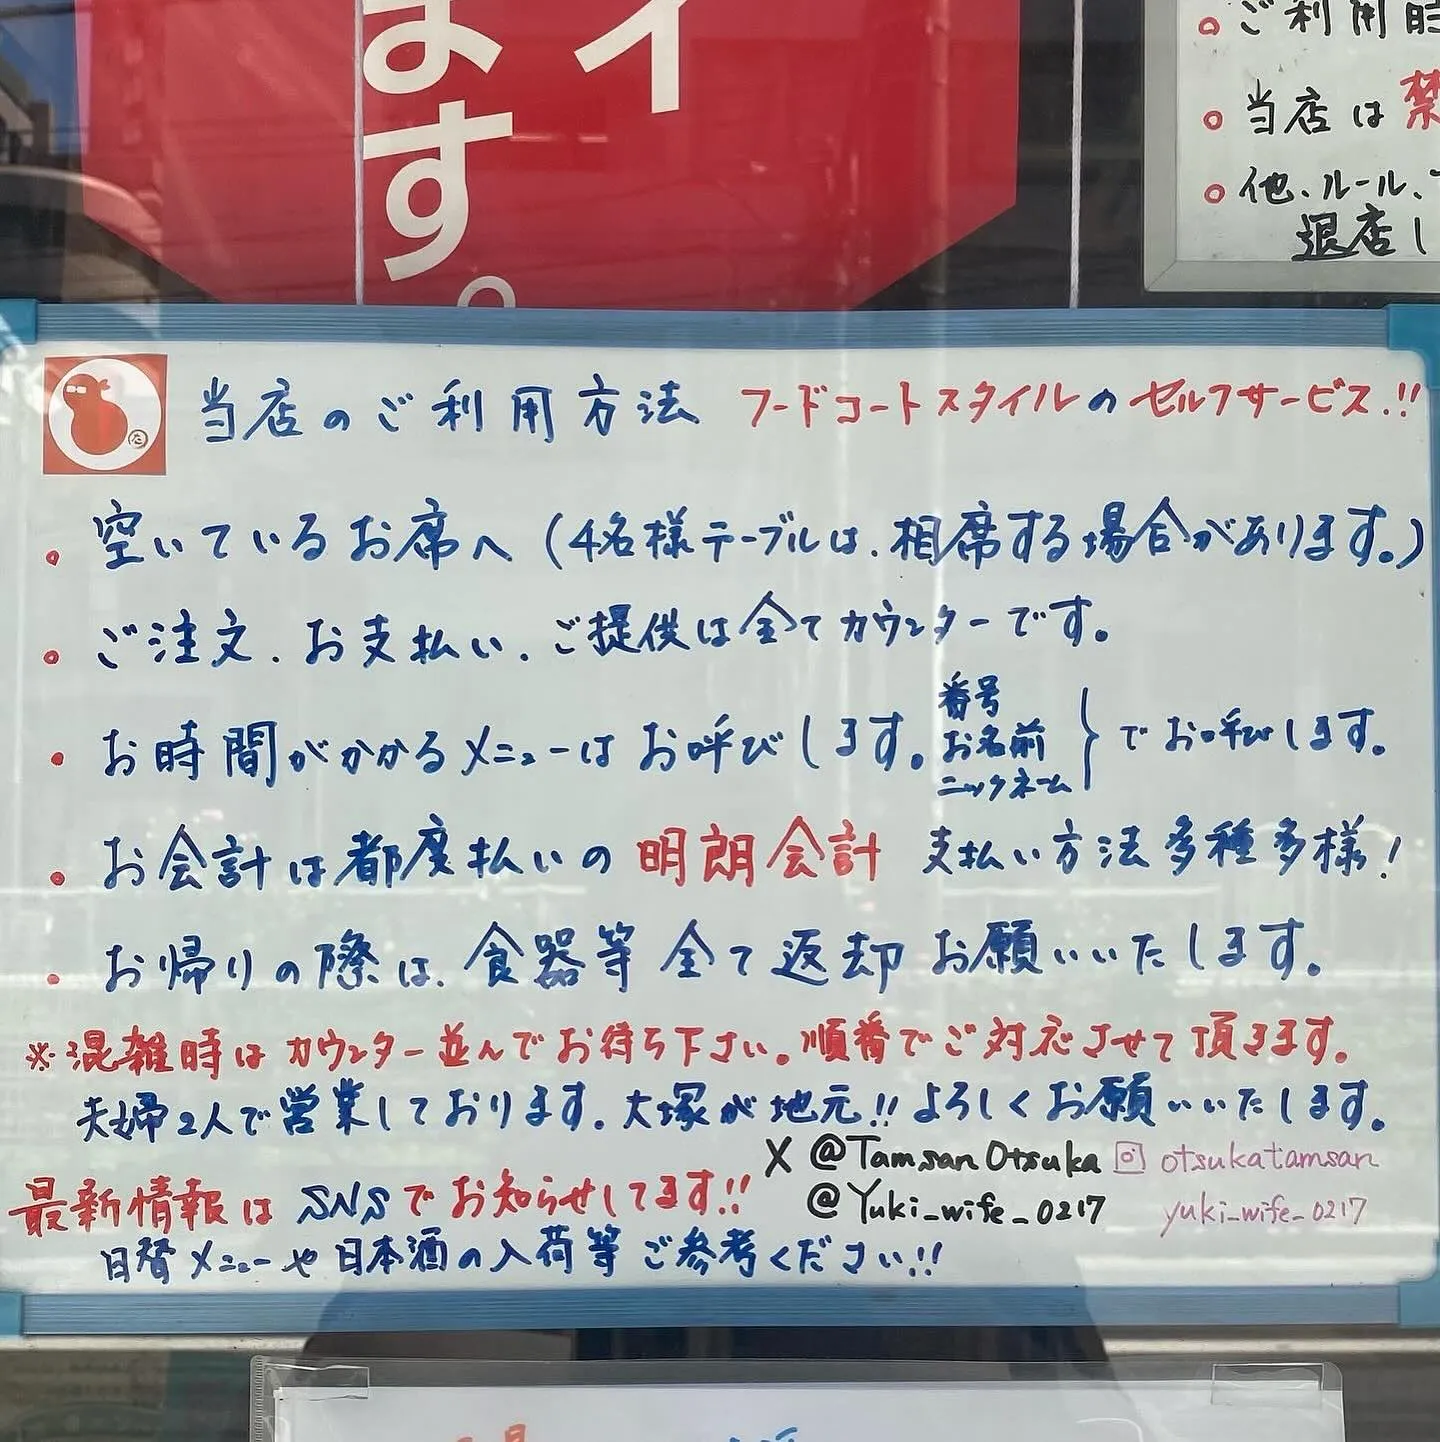 イ
ます。
ご利用時
当店は禁
他、ルール、
退店し
当店のご利用方法 フードコートスタイルのセルフサービス!!
空いているお席へ(4名様テーブルは、相席する場合があります。)
ご注文、お支払い、ご提供は全てカウンターです。
お時間がかかるメニューはお呼びします。番号 お名前 ニックネーム}でお呼びします。
お会計は都度払いの明朗会計 支払い方法多種多様!
お帰りの際は、食器等全て返却お願いいたします。
※混雑時はカウンター並んでお待ち下さい。順番でご対応させて頂きます。
夫婦2人で営業しております。大塚が地元!!よろしくお願いいたします。
X @TamsanOtsuka otsukatamsan
@Yuki_wife_0217 yuki_wife_0217
最新情報はSNSでお知らせしてます!!
日替メニューや日本酒の入荷等ご参考ください!!